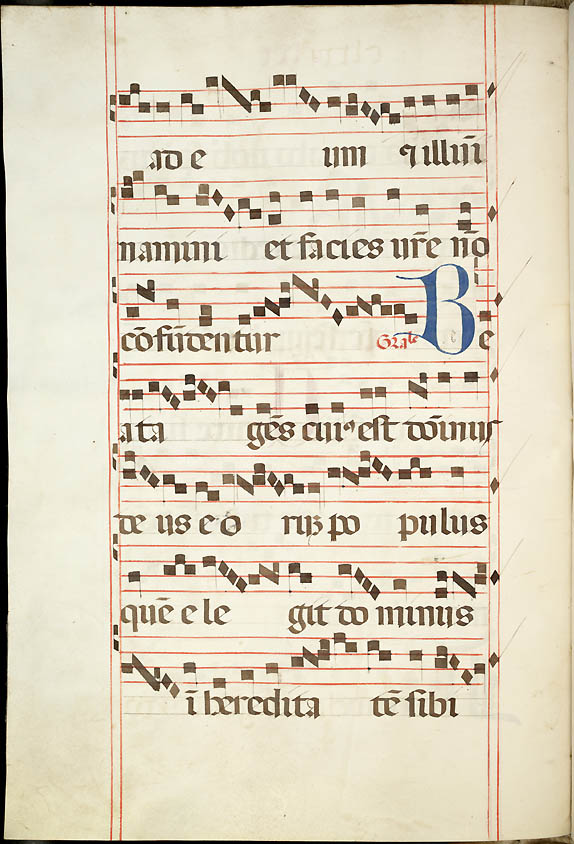 ad e um ⁊ illūi
namini et facies ur̄e nō
cōfūdentur Gral̄e Be
ata gēs cui⁹ est dōinus
deus eo rūꝫ po pulus
quē ele git do minus
ī heredita tē sibi